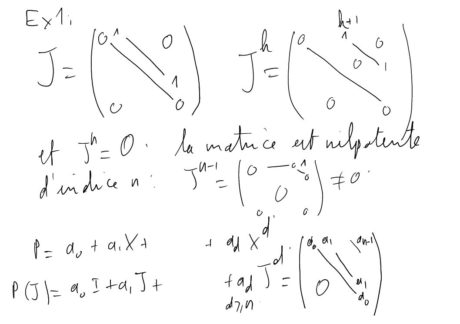 Ex1.
J = ( 0 1 0 1 0 0 )   J^k = ( 0 k+1 1 0 0 1 0 0 )
et J^n = 0. la matrice est nilpotente
d'indice n : J^{n-1} = ( 0 — 0 1 0 0 0 0 ) ≠ 0.
P = a_0 + a_1 X + + a_d X^d.
P(J) = a_0 I + a_1 J + + a_d J^d = ( a_0 a_1 a_{n-1} 0 a_1 a_0 )
d ≥ n